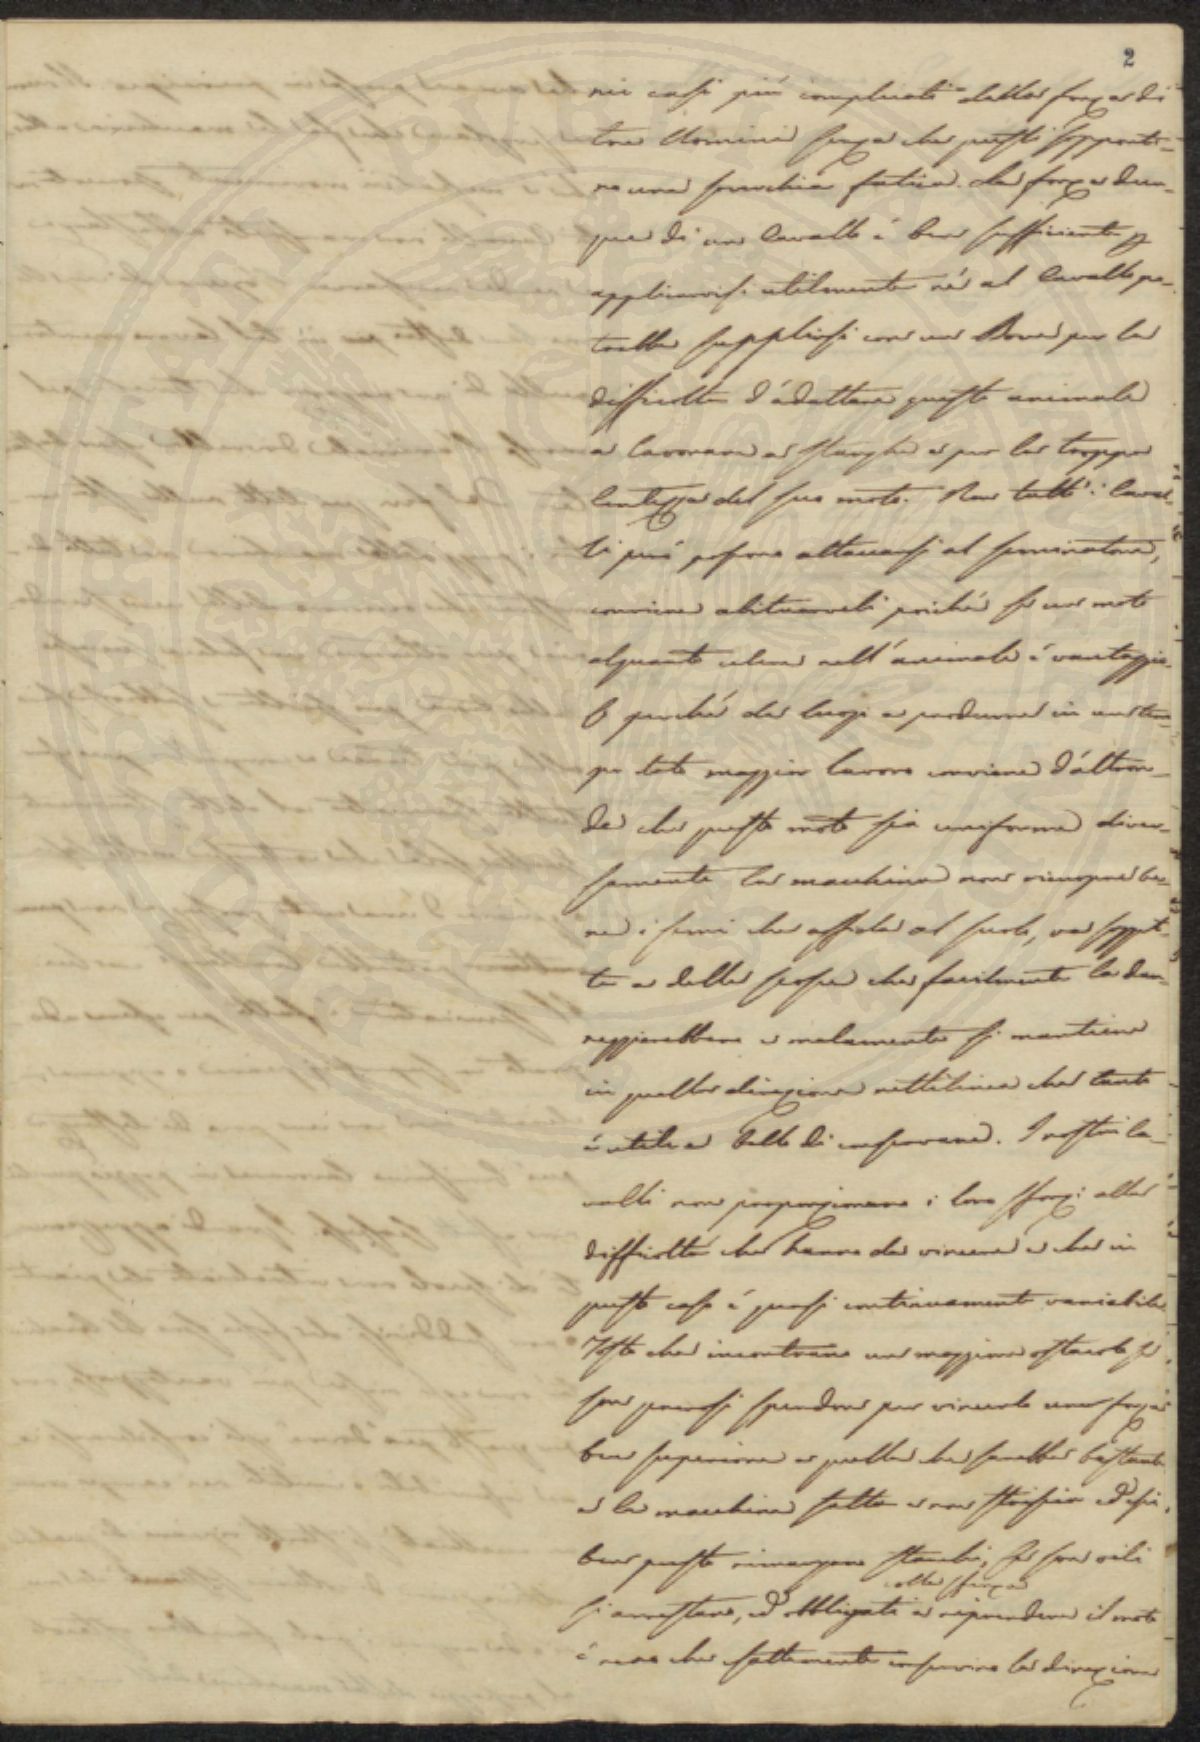 2
nei casi più complicati della forza di
tre Uomini senza che questi sopporti-
no una soverchia fatica. La forza dun-
que di un Cavallo è ben sufficiente p
applicarvisi utilmente nè al Cavallo po-
trebbe supplirsi con un Bove per la
difficoltà d'adattare questo animale
a lavorare a stanghe e per la troppa
lentezza del suo moto. Non tutti i Caval-
li però possono attaccarsi al seminatore,
conviene abituarveli poichè se un moto
alquanto celere nell'animale è vantaggio-
so perchè dà luogo a produrre in un tem-
po dato maggior lavoro conviene d'altron-
de che questo moto sia uniforme diver-
samente la macchina non ricuopre be-
ne i semi che affida al suolo, va sogget-
ta a delle scosse che facilmente la dan-
neggierebbero e malamente si mantiene
in quella direzione rettilinea che tanto
è utile e bello di conservare. I nostri ca-
valli non proporzionano i loro sforzi alle
difficoltà che hanno da vincere e che in
questo caso è quasi continuamente variabile
Tosto che incontrano un maggiore ostacolo se
son generosi spendon per vincerlo una forza
ben superiore a quella che sarebbe bastante
e la macchina salta e non striscia ed essi
ben presto rimangono stanchi, se son vili
colla sferza
si arrestano, ed obbligati a riprendere il moto
è raro che esattamente conservino la direzione